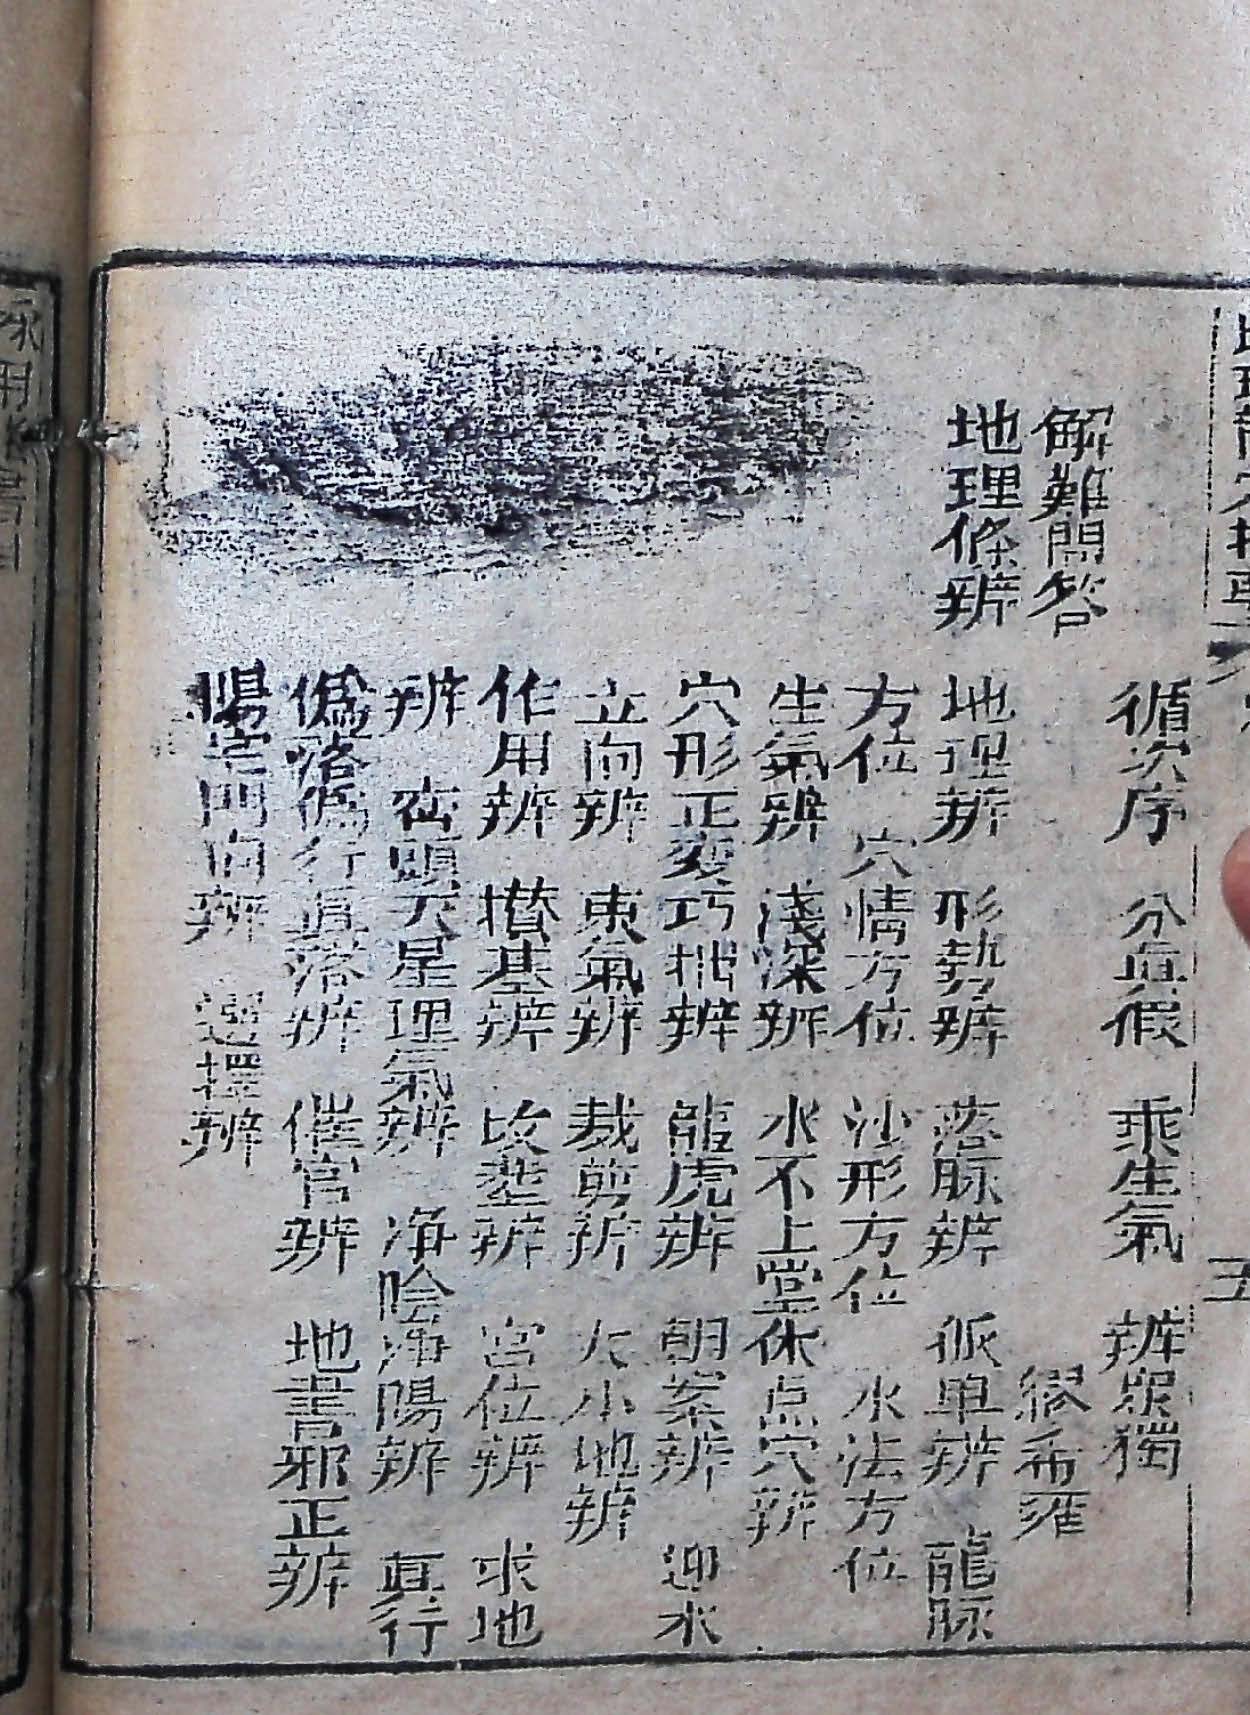 循次序　分真假　乘生氣　辨眾獨
解難問答　繆希雍
地理條辨
地理辨　形勢辨　落脉辨　派單辨　龍脉
方位　穴情方位　沙形方位　水法方位
生氣辨　淺深辨　水不上堂休点穴辨
穴形正変巧拙辨　龍虎辨　朝案辨　迎水
立向辨　裁剪辨　大小地辨
作用辨　基辨　宮位辨　求地
辨　星理氣辨　净陰净陽辨　真行
偽落偽行真落辨　催官辨　地書邪正辨
陽宅門向辨　選擇辨
五